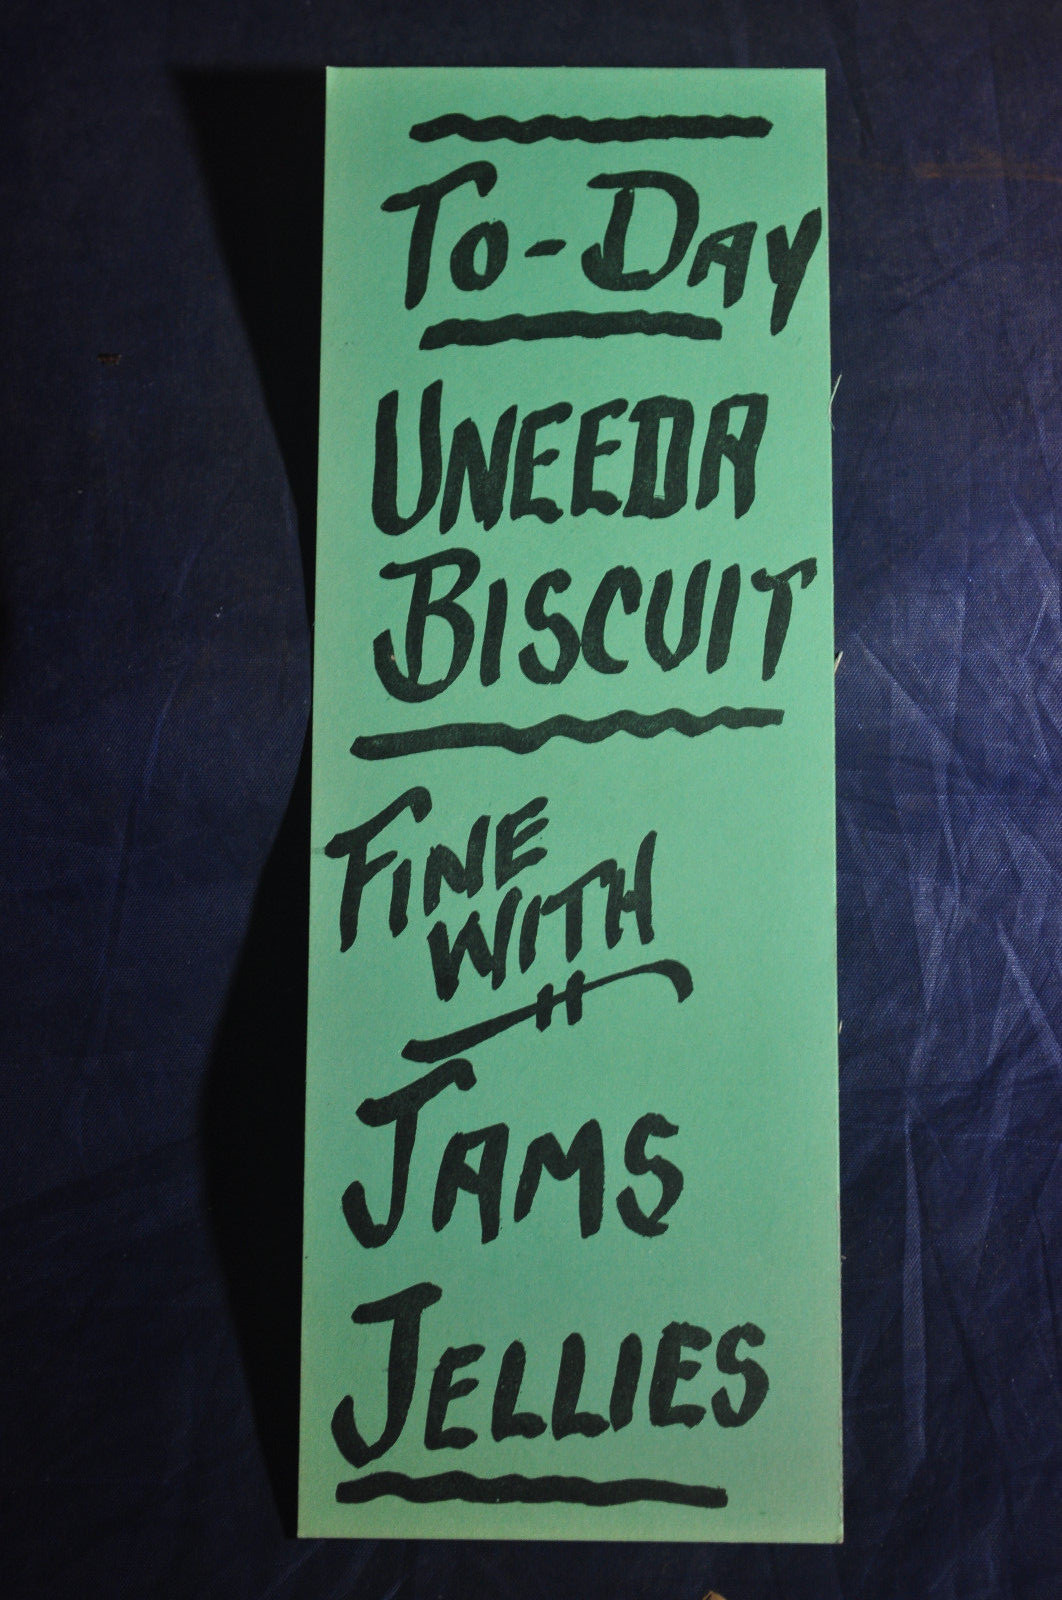 To-Day
UNEEDA
BISCUIT
FINE
WITH
JAMS
JELLIES